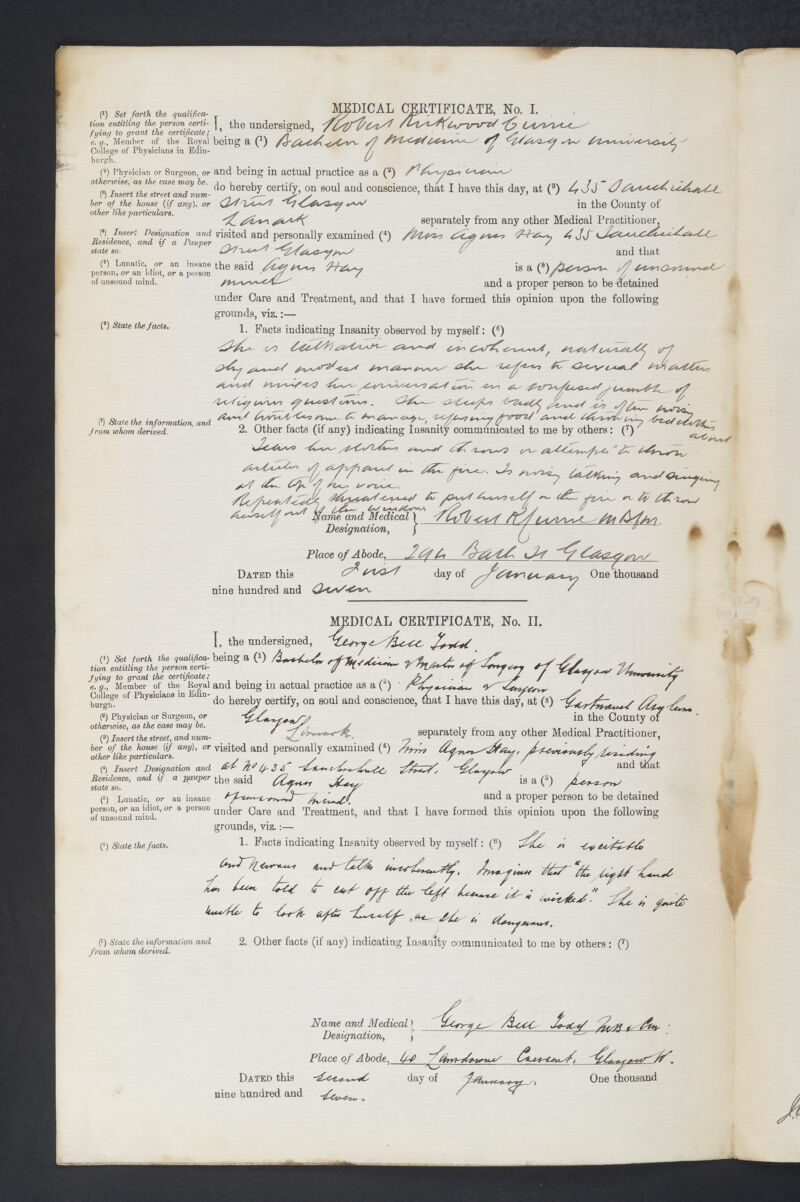 MEDICAL CERTIFICATE, No. I.
(¹) Set forth the qualifica-
tion entitling the person certi-
fying to grant the certificate;
e. g., Member of the Royal
College of Physicians in Edin-
burgh.
(²) Physician or Surgeon, or
otherwise, as the case may be.
(³) Insert the street and num-
ber of the house (if any), or
other like particulars.
(⁴) Insert Designation and
Residence, and if a Pauper
state so.
(⁵) Lunatic, or an insane
person, or an idiot, or a person
of unsound mind.
(⁶) State the facts.
(⁷) State the information, and
from whom derived.
I, the undersigned, Robert Kirkwood Currie
being a (¹) Bachelor of Medicine of Glasgow University
and being in actual practice as a (²) Physician
do hereby certify, on soul and conscience, that I have this day, at (³) 435 Sauchiehall
Street Glasgow in the County of
Lanark separately from any other Medical Practitioner,
visited and personally examined (⁴) Miss Agnes Hay 435 Sauchiehall
Street Glasgow and that
the said Agnes Hay is a (⁵) person of unsound
mind and a proper person to be detained
under Care and Treatment, and that I have formed this opinion upon the following
grounds, viz. :—
1. Facts indicating Insanity observed by myself: (⁶)
She is talkative and incoherent, naturally of
shy and modest manner she refers to sexual matters
and mixes her conversation in a confused jumble of
religious questions. She sleeps badly and is often noisy
and troublesome to manage, refusing food and throwing bedclothes
about
2. Other facts (if any) indicating Insanity communicated to me by others: (⁷)
Tears her clothes and throws or attempts to throw
articles of apparel in the fire. Is noisy talking and singing
at the top of her voice.
Repeatedly threatened to put herself on the fire or to throw
herself out of the window
Name and Medical Designation, Robert K Currie M B
Place of Abode, 294 Bath St Glasgow
DATED this First day of January One thousand
nine hundred and seven
MEDICAL CERTIFICATE, No. II.
(¹) Set forth the qualifica-
tion entitling the person certi-
fying to grant the certificate;
e. g., Member of the Royal
College of Physicians in Edin-
burgh.
(²) Physician or Surgeon, or
otherwise, as the case may be.
(³) Insert the street, and num-
ber of the house (if any), or
other like particulars.
(⁴) Insert Designation and
Residence, and if a pauper
state so.
(⁵) Lunatic, or an insane
person, or an idiot, or a person
of unsound mind.
(⁶) State the facts.
(⁷) State the information and
from whom derived.
I, the undersigned, George Bell Todd.
being a (¹) Bachelor of Medicine & Master of Surgery of Glasgow University
and being in actual practice as a (²) Physician & Surgeon
do hereby certify, on soul and conscience, that I have this day, at (³) Gartnavel Asylum
Glasgow in the County of
Lanark. separately from any other Medical Practitioner,
visited and personally examined (⁴) Miss Agnes Hay, previously residing
at No 435 Sauchiehall Street, Glasgow and that
the said Agnes Hay is a (⁵) person
of unsound mind. and a proper person to be detained
under Care and Treatment, and that I have formed this opinion upon the following
grounds, viz. :—
1. Facts indicating Insanity observed by myself: (⁶) She is excitable
and nervous and talks incoherently. Imagines that "the right hand
has been told to cut off the left because it is wicked". She is quite
unable to look after herself, as she is dangerous.
2. Other facts (if any) indicating Insanity communicated to me by others: (⁷)
Name and Medical Designation, George Bell Todd M.B. & Cm:
Place of Abode, 40 Lansdowne Crescent, Glasgow W.
DATED this second day of January. One thousand
nine hundred and seven.